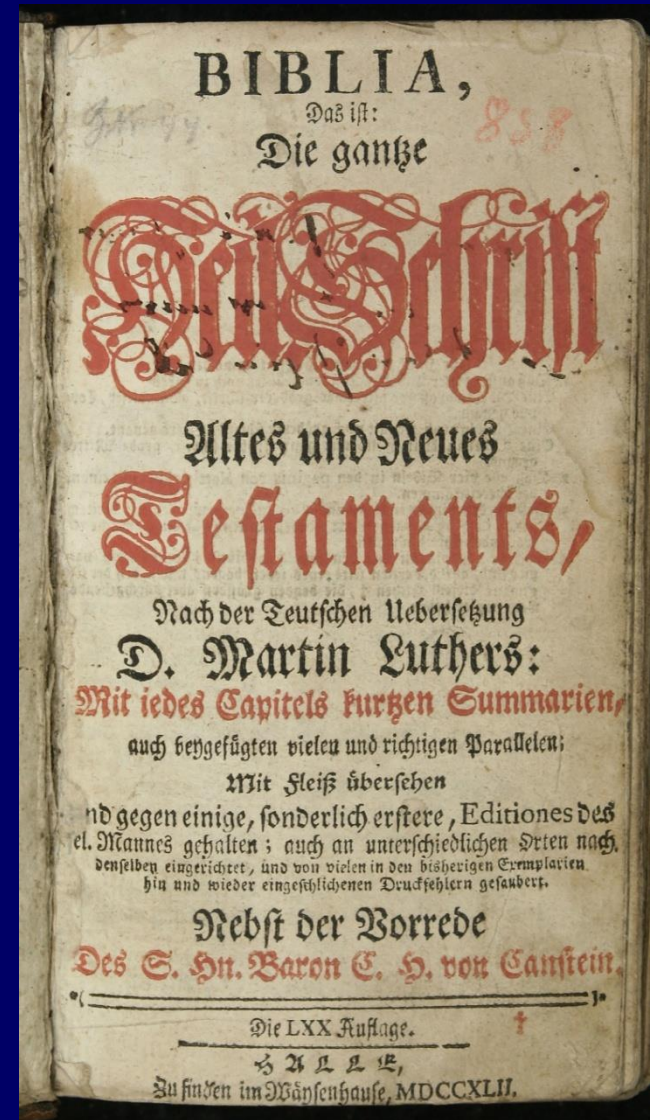 BIBLIA,
Das ist:
Die gantze
Heil. Schrift
Altes und Neues
Testaments,
Nach der Teutschen Uebersetzung
D. Martin Luthers:
Mit iedes Capitels kurtzen Summarien,
auch beygefügten vielen und richtigen Parallelen;
Mit Fleiß übersehen
nd gegen einige, sonderlich erstere, Editiones des
el. Mannes gehalten; auch an unterschiedlichen Orten nach
denselben eingerichtet, und von vielen in den bisherigen Exemplarien
hin und wieder eingeschlichenen Druckfehlern gesaubert.
Nebst der Vorrede
Des S. Hn. Baron C. H. von Canstein.
Die LXX Auflage.
HALLE,
Zu finden im Wäysenhause, MDCCXLII.